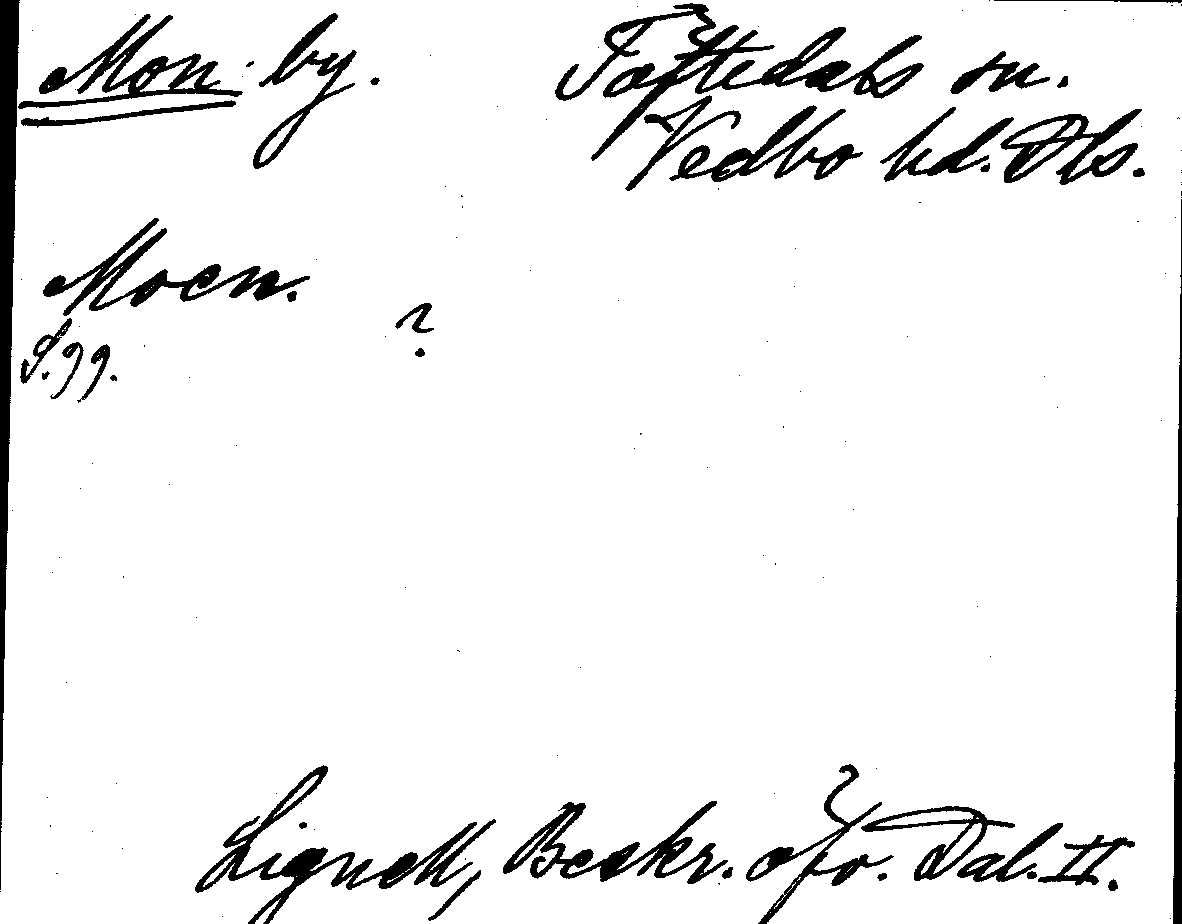 Mon by. Töftedals sn.
Vedbo hd. Dls.
Moen.
S. 99. ?
Lignell, Beskr. öfv. Dal. II.